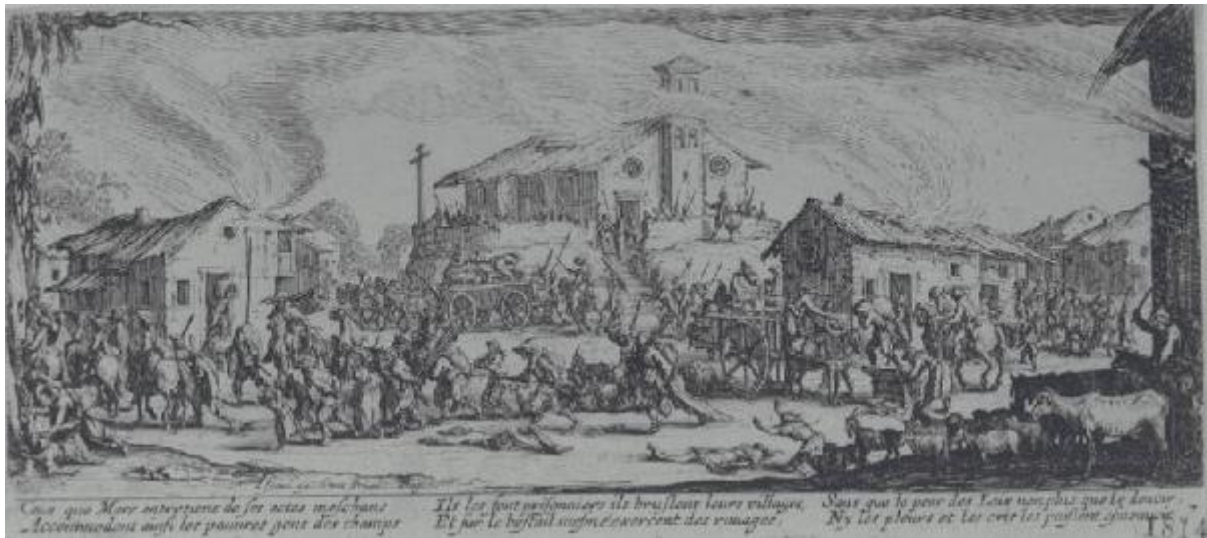 Ceux que Mars entretient de ses actes meschans
Accommodent ainsi les pauures gens des champs
Ils les font prisonniers ils bruslent leurs villages,
Et sur le bestail mesme exercent des rauages,
Sans que la peur des Loix non plus que le deuoir,
Ny les pleurs et les cris les puissent esmouuoir